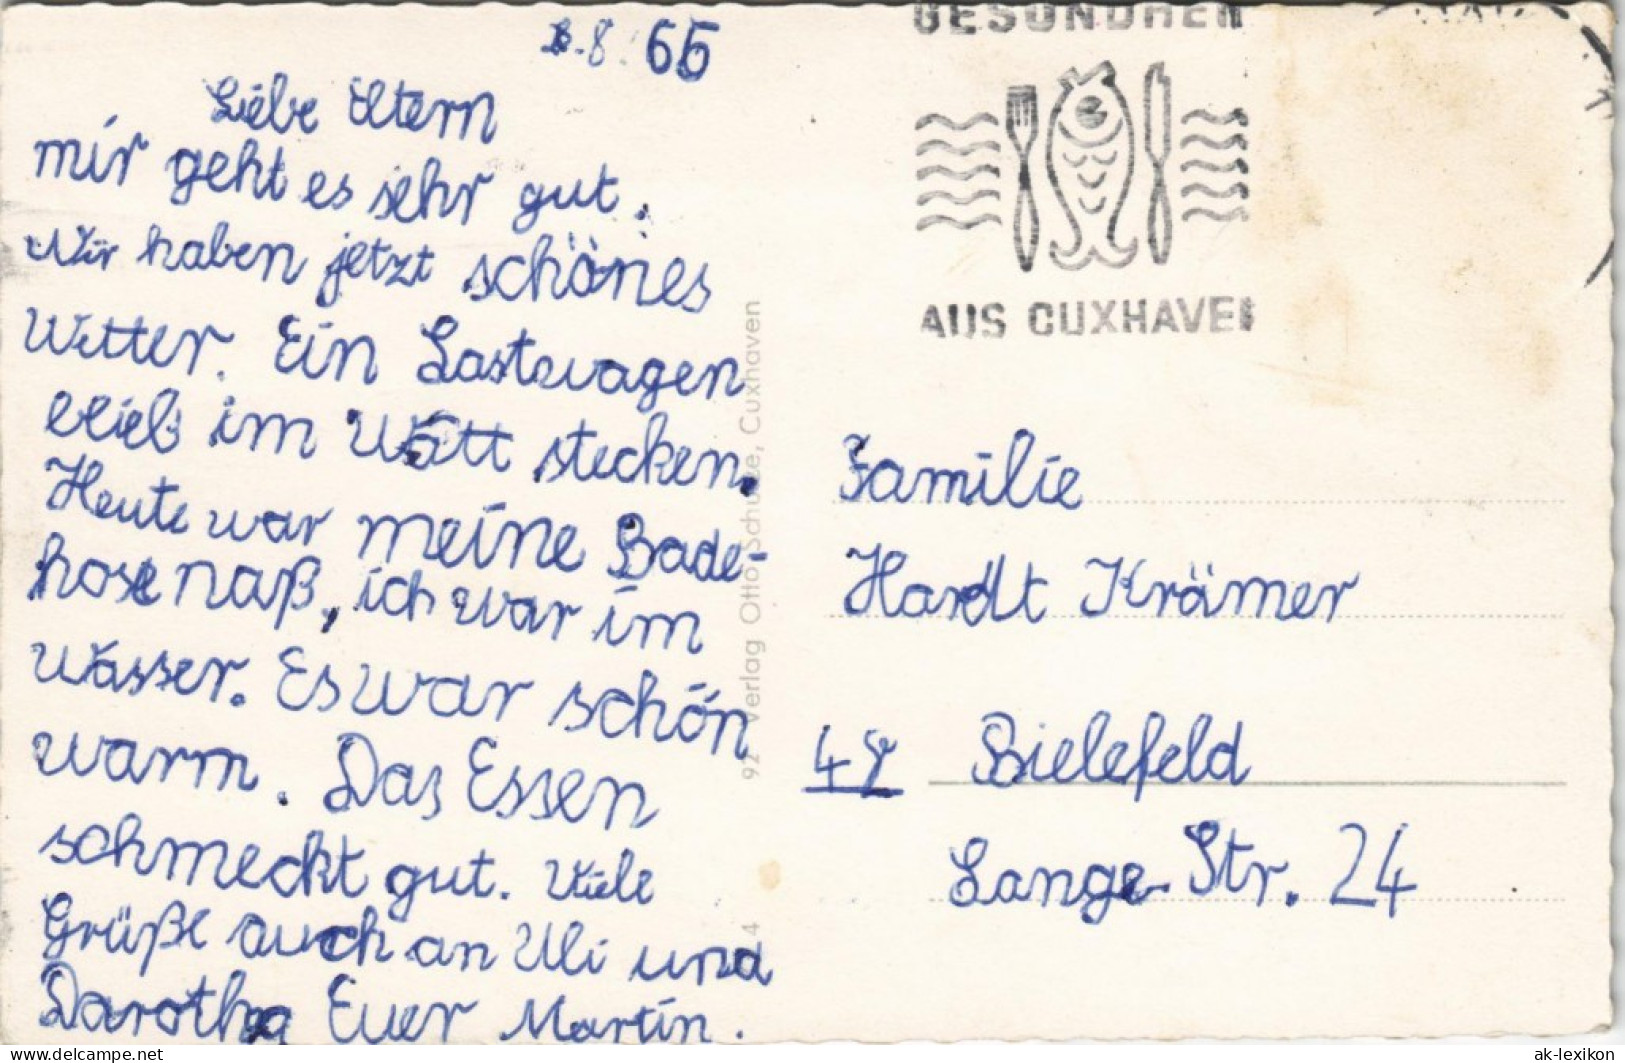 8. 65
Liebe Eltern
mir geht es sehr gut.
Wir haben jetzt schönes
Wetter. Ein Lastwagen
blieb im Watt stecken.
Heute war meine Bade-
hose naß, ich war im
Wasser. Es war schön
warm. Das Essen
schmeckt gut. Viele
Grüße auch an Uli und
Darothea Euer Martin.
92 Verlag Otto Schulze, Cuxhaven
4
GESUNDHEIT
AUS CUXHAVEN
Familie
Hardt Krämer
48 Bielefeld
Lange-Str. 24
https://www.delcampe.net
ak-lexikon